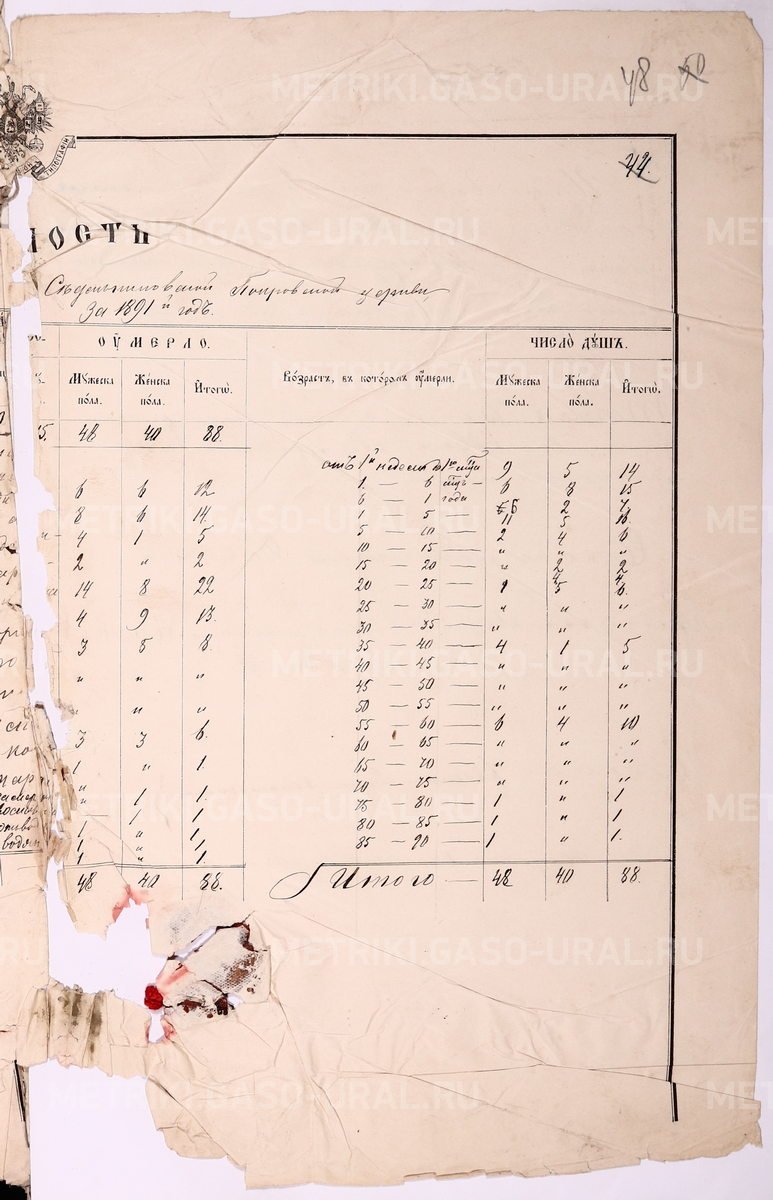 48
50
44.
МОСТЬ
Покровской церкви,
За 1891й годъ.
ОУМЕРЛО. ЧИСЛО ДУШЪ.
Мужеска пола. Женска пола. Итогѡ. Возрастъ, въ которомъ оумерли. Мужеска пола. Женска пола. Итогѡ.
5. 48 40 88.
отъ 1й недели до 1го 9 5 14
6 6 12 1 — 6 — 6 8 15
8 6 14 6 — 1 года 6 2 7
4 1 5 1 — 5 — 11 5 16
5 — 10 — 2 4 6
2 " 2 10 — 15 — " " "
15 — 20 — " 2 2
14 8 22 20 — 25 — 1 5 6
4 9 13. 25 — 30 — " " "
30 — 35 — " " "
3 5 8 35 — 40 — 4 1 5
" " " 40 — 45 — " " "
45 — 50 — " " "
" " " 50 — 55 — " " "
3 3 6. 55 — 60 — 6 4 10
60 — 65 — " " "
1 " 1. 65 — 70 — " " "
" 1 1. 70 — 75 — " " "
1 1 75 — 80 — 1 " 1
1 " 1 80 — 85 — 1 " 1
1 " 1 85 — 90 — 1 " 1.
48 40 88. Итого — 48 40 88.
METRIKI.GASO-URAL.RU